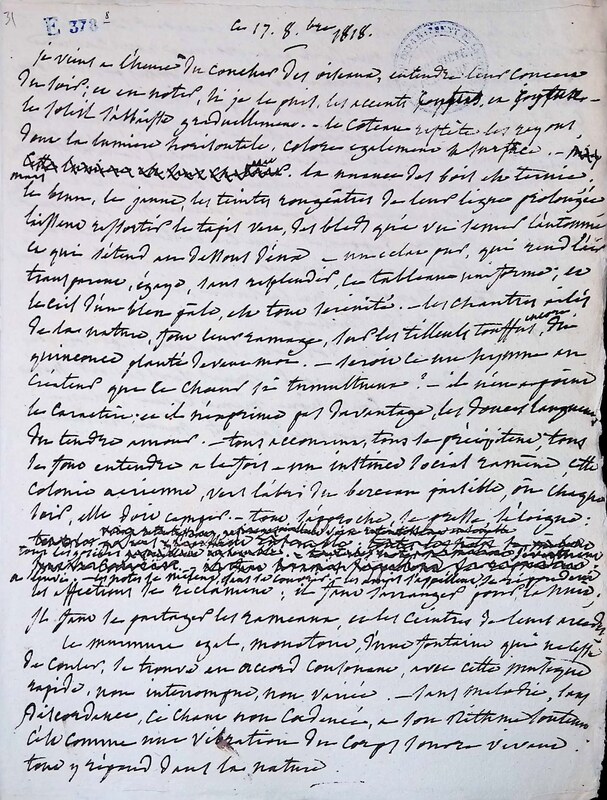 31
E 378 8
ce 17. 8.bre 1818.
je viens a l'heure du coucher des oiseaux, entendre leur concert
du soir; et en noter, si je le puis, les accents
le soleil s'abaisse graduellement. – le coteau reflète les rayons,
dont la lumière horisontale, colore egalement la surface. –
mais la nuance des bois est ternie,
le brun, le jaune les teintes rougeâtres de leur ligne prolongée
laissent ressortir le tapis verd, des bleds qu'a vu semer l'automne
et qui s'étend au dessous d'eux – un éclat pur, qui rend l'air
transparent, égaye, sans resplendir, ce tableau uniforme; et
le ciel d'un bleu pâle, est tout sérénité. – les chantres ailés
de la nature, font leur ramage, sur les tilleuls touffus encore, du
quinconce planté devant moi. – seroit ce une hymne au
Créateur que ce chœur si tumultueux? – il n'en a point
le caractère; et il n'exprime pas davantage, les douces langueurs
du tendre amour. – tous accourent, tous se précipitent, tous
se font entendre a la fois – un instinct social ramène cette
colonie aérienne, vers l'abri du berceau paisible où chaque
soir, elle doit camper – tout s'approche, se presse, s'éloigne:
tous les
a l'envie – les notes se mêlent, dans ce concours – les amis s'appellent, se répondent
les affections se réclament; il faut s'arranger pour la nuit,
Il faut se partager les rameaux, et les ceintres de leurs
le murmure egal, monotone, d'une fontaine qui ne cesse
de couler, se trouve en accord consonant, avec cette musique
rapide, non interrompue, non variée. – sans melodie, sans
discordance, ce chant non cadencé, a son rithme soutenu
c'est comme une vibration du corps sonore vivant
tout y répond dans la nature.